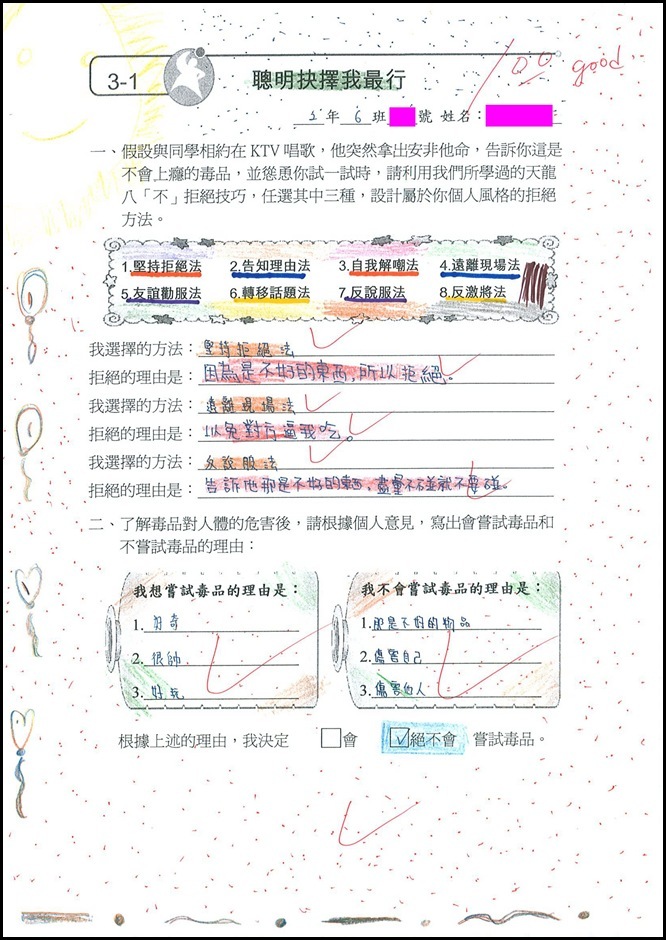 3-1
聰明抉擇我最行
100 good
1年6班 號 姓名：
一、假設與同學相約在 KTV 唱歌，他突然拿出安非他命，告訴你這是
不會上癮的毒品，並慫恿你試一試時，請利用我們所學過的天龍
八「不」拒絕技巧，任選其中三種，設計屬於你個人風格的拒絕
方法。
1.堅持拒絕法 2.告知理由法 3.自我解嘲法 4.遠離現場法
5.友誼勸服法 6.轉移話題法 7.反說服法 8.反激將法
我選擇的方法：堅持拒絕法
拒絕的理由是：因為是不好的東西,所以拒絕。
我選擇的方法：遠離現場法
拒絕的理由是：以免對方逼我吃。
我選擇的方法：反說服法
拒絕的理由是：告訴他那是不好的東西,盡量不碰就不要碰。
二、了解毒品對人體的危害後，請根據個人意見，寫出會嘗試毒品和
不嘗試毒品的理由：
我想嘗試毒品的理由是：
1. 好奇
2. 很帥
3. 好玩
我不會嘗試毒品的理由是：
1.那是不好的物品
2.傷害自己
3.傷害他人
根據上述的理由，我決定 □會 ☑絕不會 嘗試毒品。